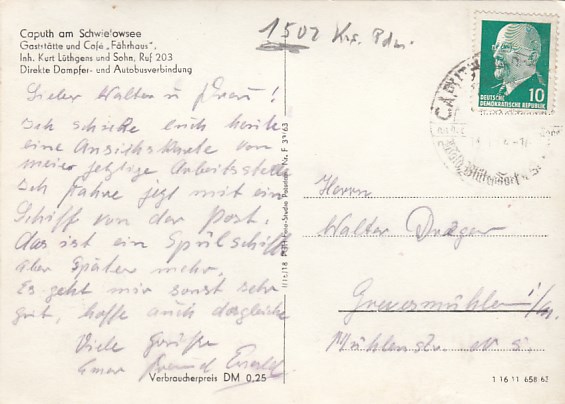 Caputh am Schwielowsee
Gaststätte und Café „Fährhaus",
Inh. Kurt Lüthgens und Sohn, Ruf 203
Direkte Dampfer- und Autobusverbindung
1502 Krs. Pdm.
DEUTSCHE
DEMOKRATISCHE REPUBLIK 10
CAPUTH
Lieber Walter u Frau!
Ich schicke Euch heute
eine Ansichtskarte von
meier jetzige Arbeitsstelle
Ich fahre jezt mit ein
Schiff von der Post.
Das ist ein Spülschiff
aber später mehr.
Es geht mir sonst sehr
gut, hoffe auch dasgleiche
Viele Grüße
Euer Freund Ewald
Herrn
Walter Dräger
Grevesmühlen i/M.
Mühlenstr.
Verbraucherpreis DM 0,25
1 16 11 658 63